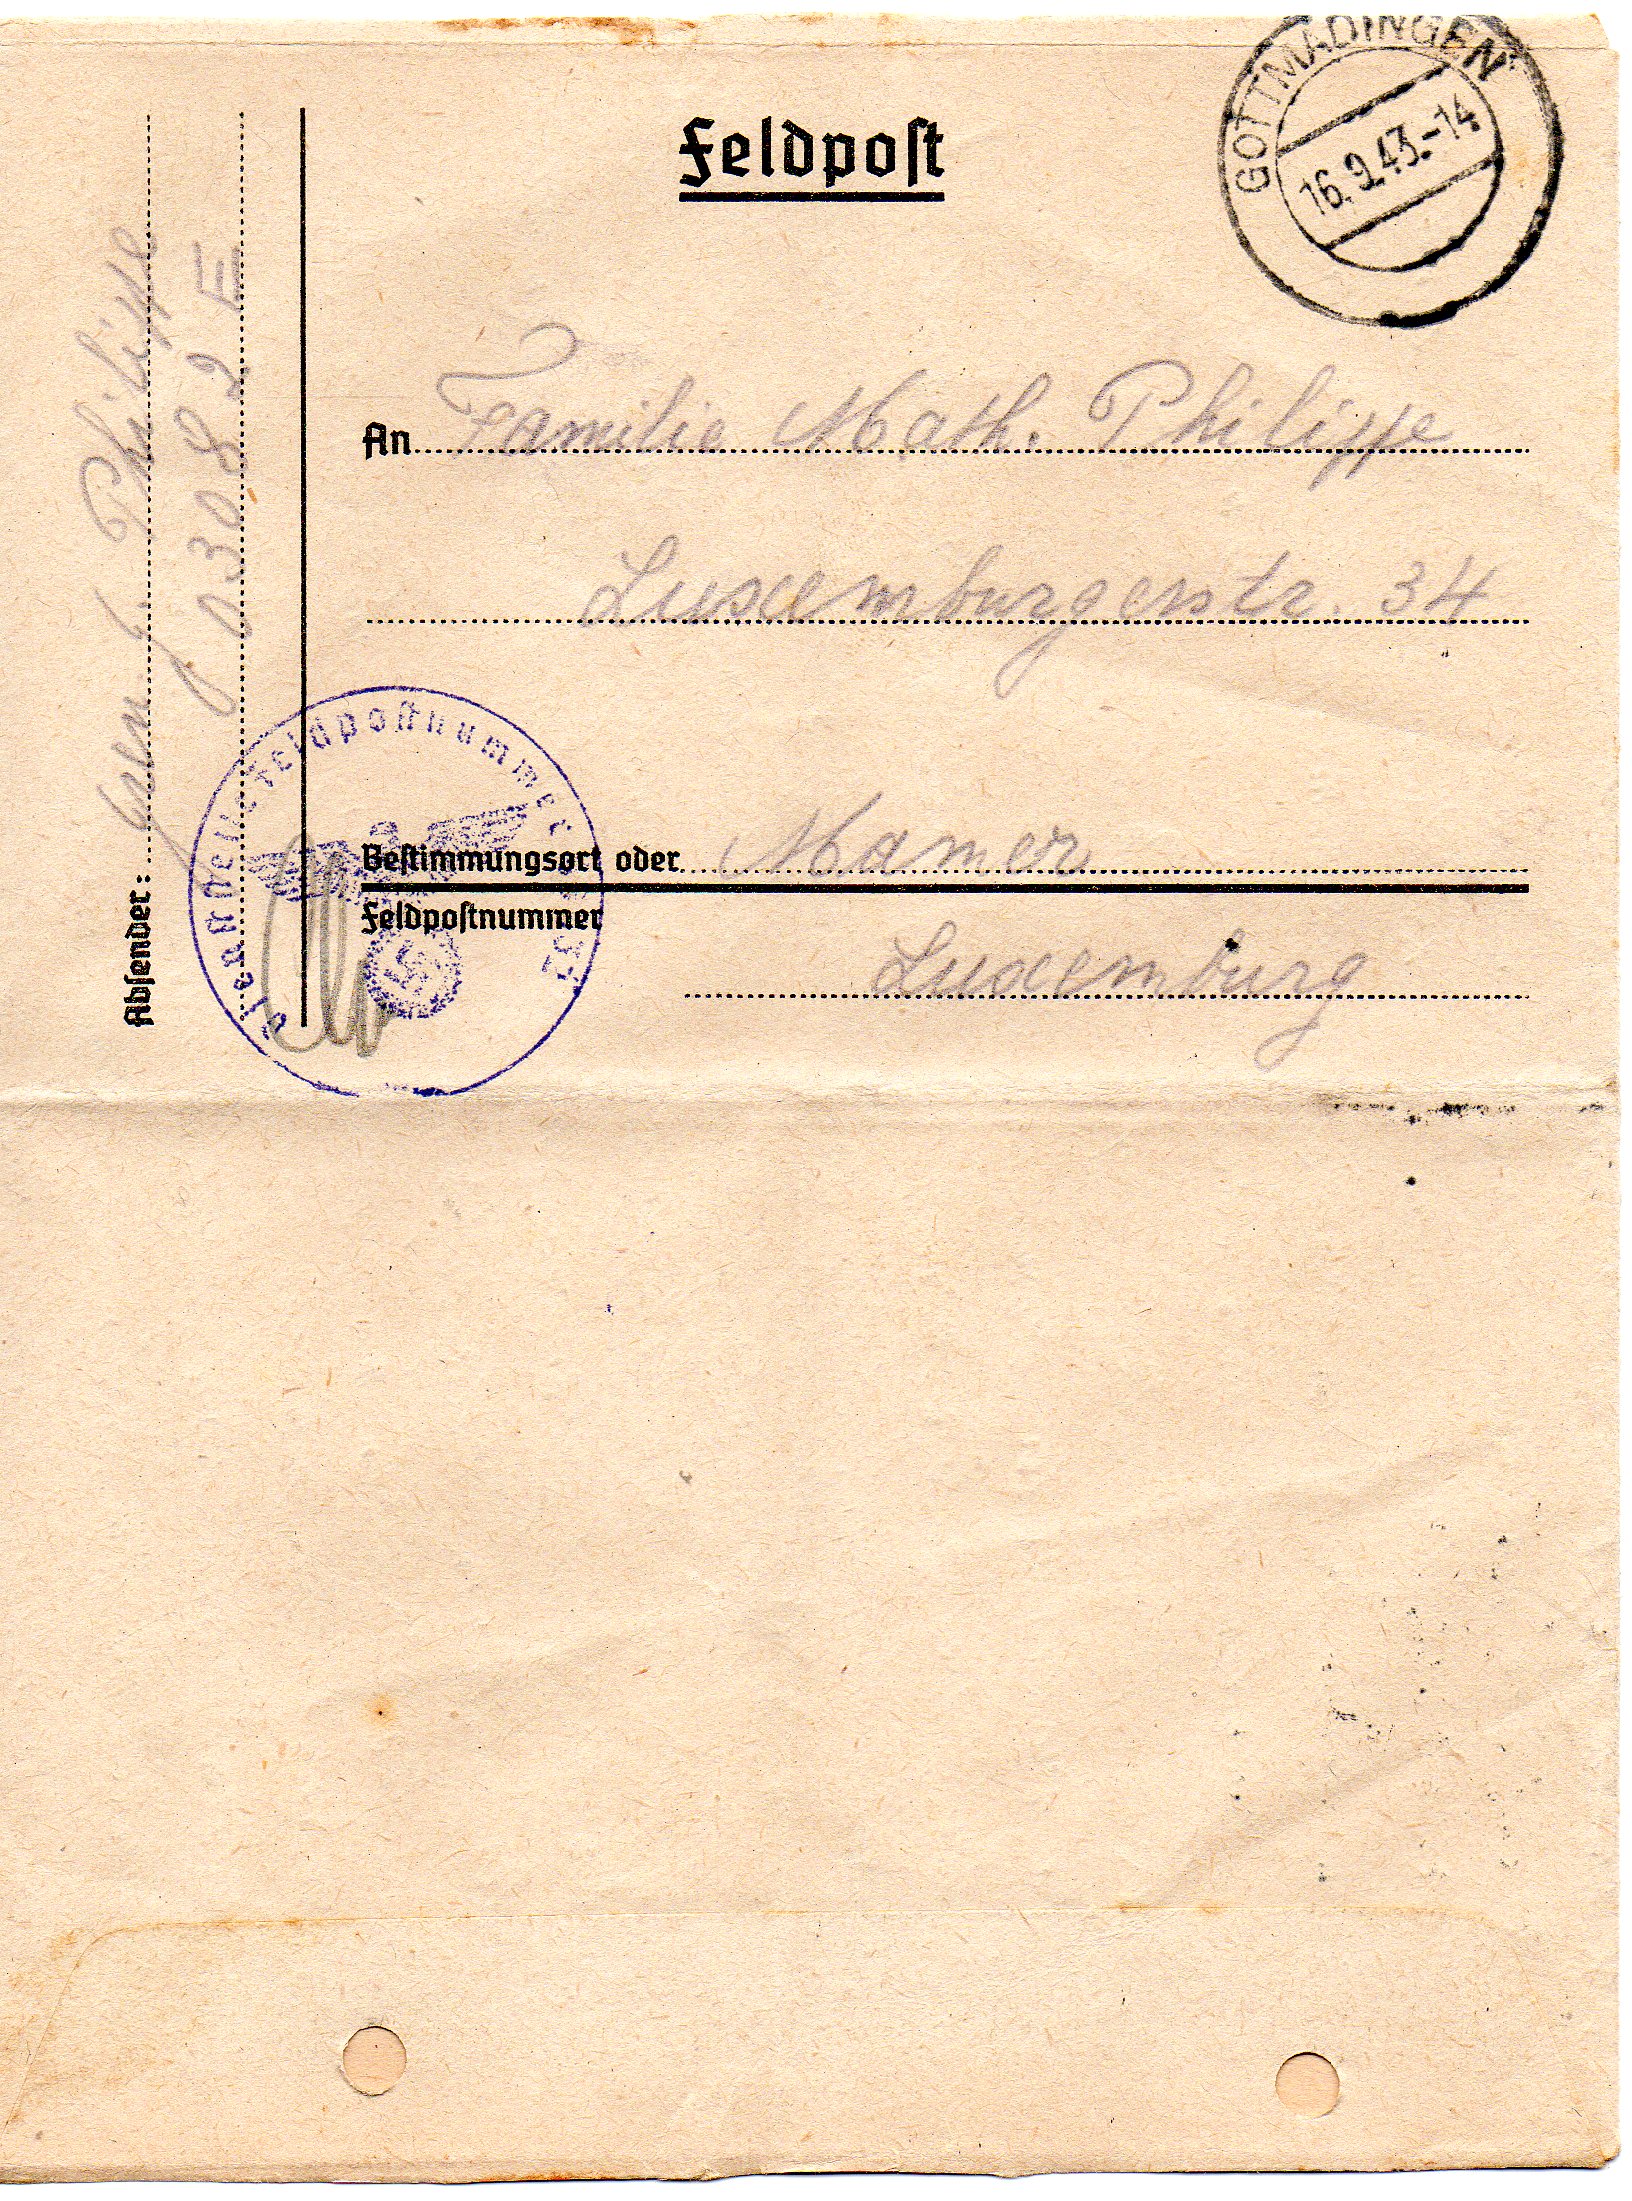 Feldpost
GOTTMADINGEN
16.9.43.-14
An Familie Math. Philippe
Luxemburgerstr. 34
Bestimmungsort oder Mamer
Feldpostnummer
Luxemburg
Absender: J. Philippe
03082 E
Dienststelle Feldpostnummer